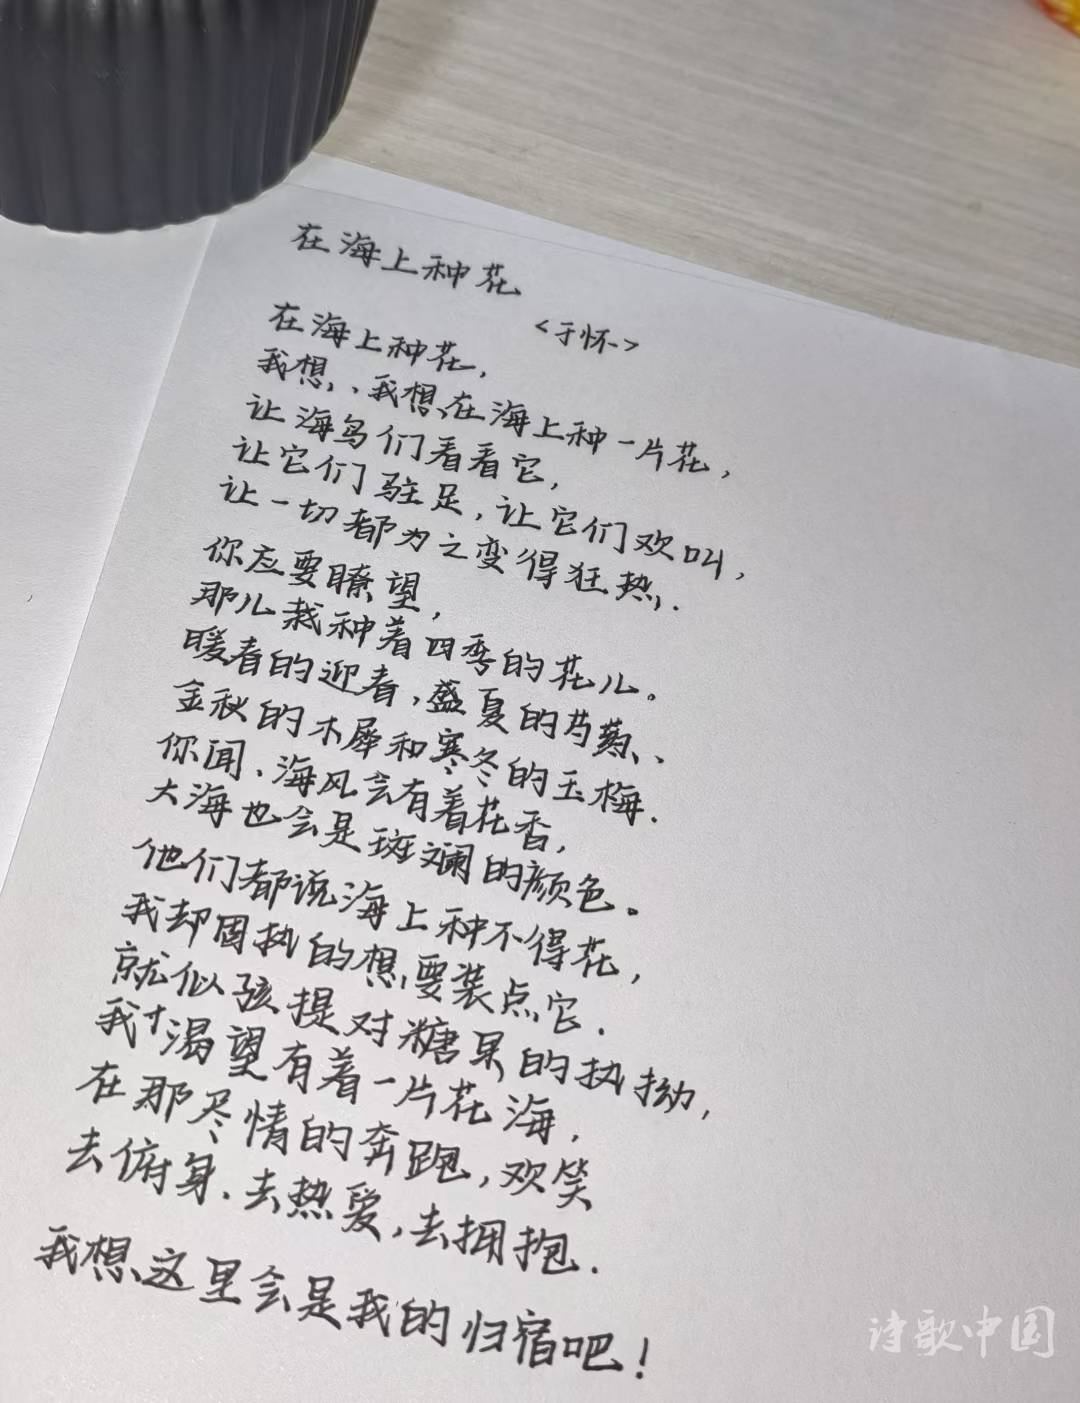 在海上种花
<于怀>
在海上种花,
我想、我想在海上种一片花,
让海鸟们看看它,
让它们驻足,让它们欢叫,
让一切都为之变得狂热.
你应要瞭望,
那儿栽种着四季的花儿。
暖春的迎春,盛夏的芍药、
金秋的木犀和寒冬的玉梅.
你闻、海风会有着花香,
大海也会是斑斓的颜色。
他们都说海上种不得花,
我却固执的想要装点它.
就似孩提对糖果的执拗,
我才渴望有着一片花海,
在那尽情的奔跑,欢笑
去俯身、去热爱,去拥抱.
我想这里会是我的归宿吧!
诗歌中国